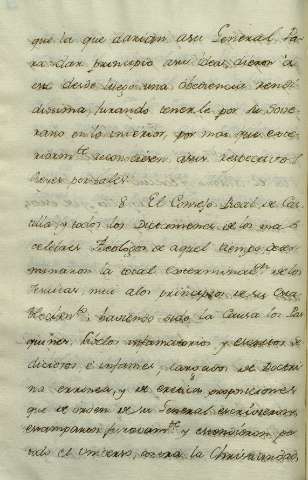 que la que darian a su General. Pa-
ra dar principio a su idea, dieron a
ese desde luego una obediencia rendi-
dissima, jurando tenerle por su Sobe-
rano en lo interior, por mas que exte-
riorm.te reconociesen a sus respectivos
Reyes por tales.
8. El Consejo Real de Cas-
tilla, y todos los Dictamenes de los mas
celebres Teologos de aquel tiempo, deter-
minaron la total exterminac.on de los
Jesuitas mui a los principios de su Esta-
blecim.to, haviendo sido la Causa los Pas-
quines, Libelos infamatorios y escritos se-
diciosos e infames, llenos de Doctri-
na erronea, y de proposiciones
que de orden de su General escrivieron,
estamparon furtivam.te y esparcieron por
todo el universo, contra la Christiandad,